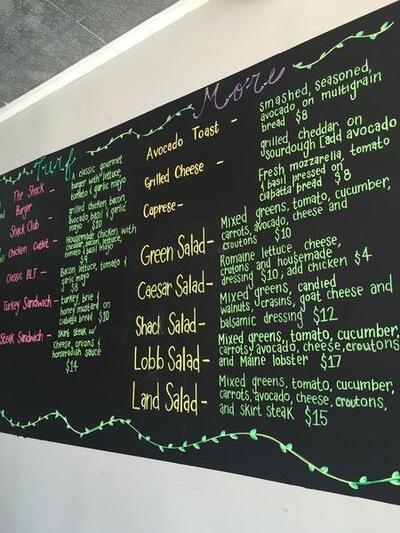 Turf
The Shack Burger
A classic gourmet
burger with lettuce,
tomato & garlic mayo
Shack Club -
grilled chicken, bacon,
avocado, basil & garlic
mayo $10
Chicken Cutlet -
Housemade chicken with
cheddar, bacon, lettuce,
tomato & basil mayo
Classic BLT -
Bacon, lettuce, tomato &
garlic mayo
$8
Turkey Sandwich -
turkey, brie &
honey mustard on
ciabatta bread $10
Steak Sandwich -
skirt steak w/
cheese, onions &
horseradish sauce
$14
More
Avocado Toast -
smashed, seasoned,
avocado on multigrain
bread $8
Grilled Cheese -
grilled cheddar on
sourdough [add avocado
Caprese -
Fresh mozzarella, tomato
& basil pressed on
ciabatta bread $8
Green Salad -
Mixed greens, tomato, cucumber,
carrots, avocado, cheese and
croutons $10
Caesar Salad -
Romaine lettuce, cheese,
crutons and housemade
dressing $10, add chicken $4
Shack Salad -
Mixed greens, candied
walnuts, crasins, goat cheese and
balsamic dressing $12
Lobb Salad -
Mixed greens, tomato, cucumber,
carrots, avocado, cheese, croutons
and Maine lobster $17
Land Salad -
Mixed greens, tomato, cucumber,
carrots, avocado, cheese, croutons,
and skirt steak $15